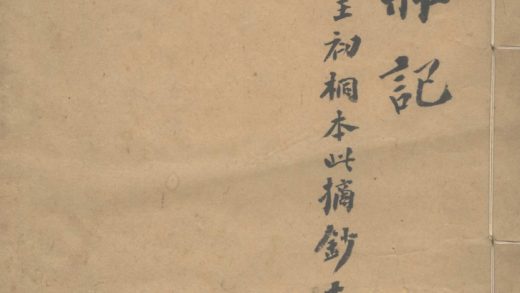 記
初桐本此摘鈔